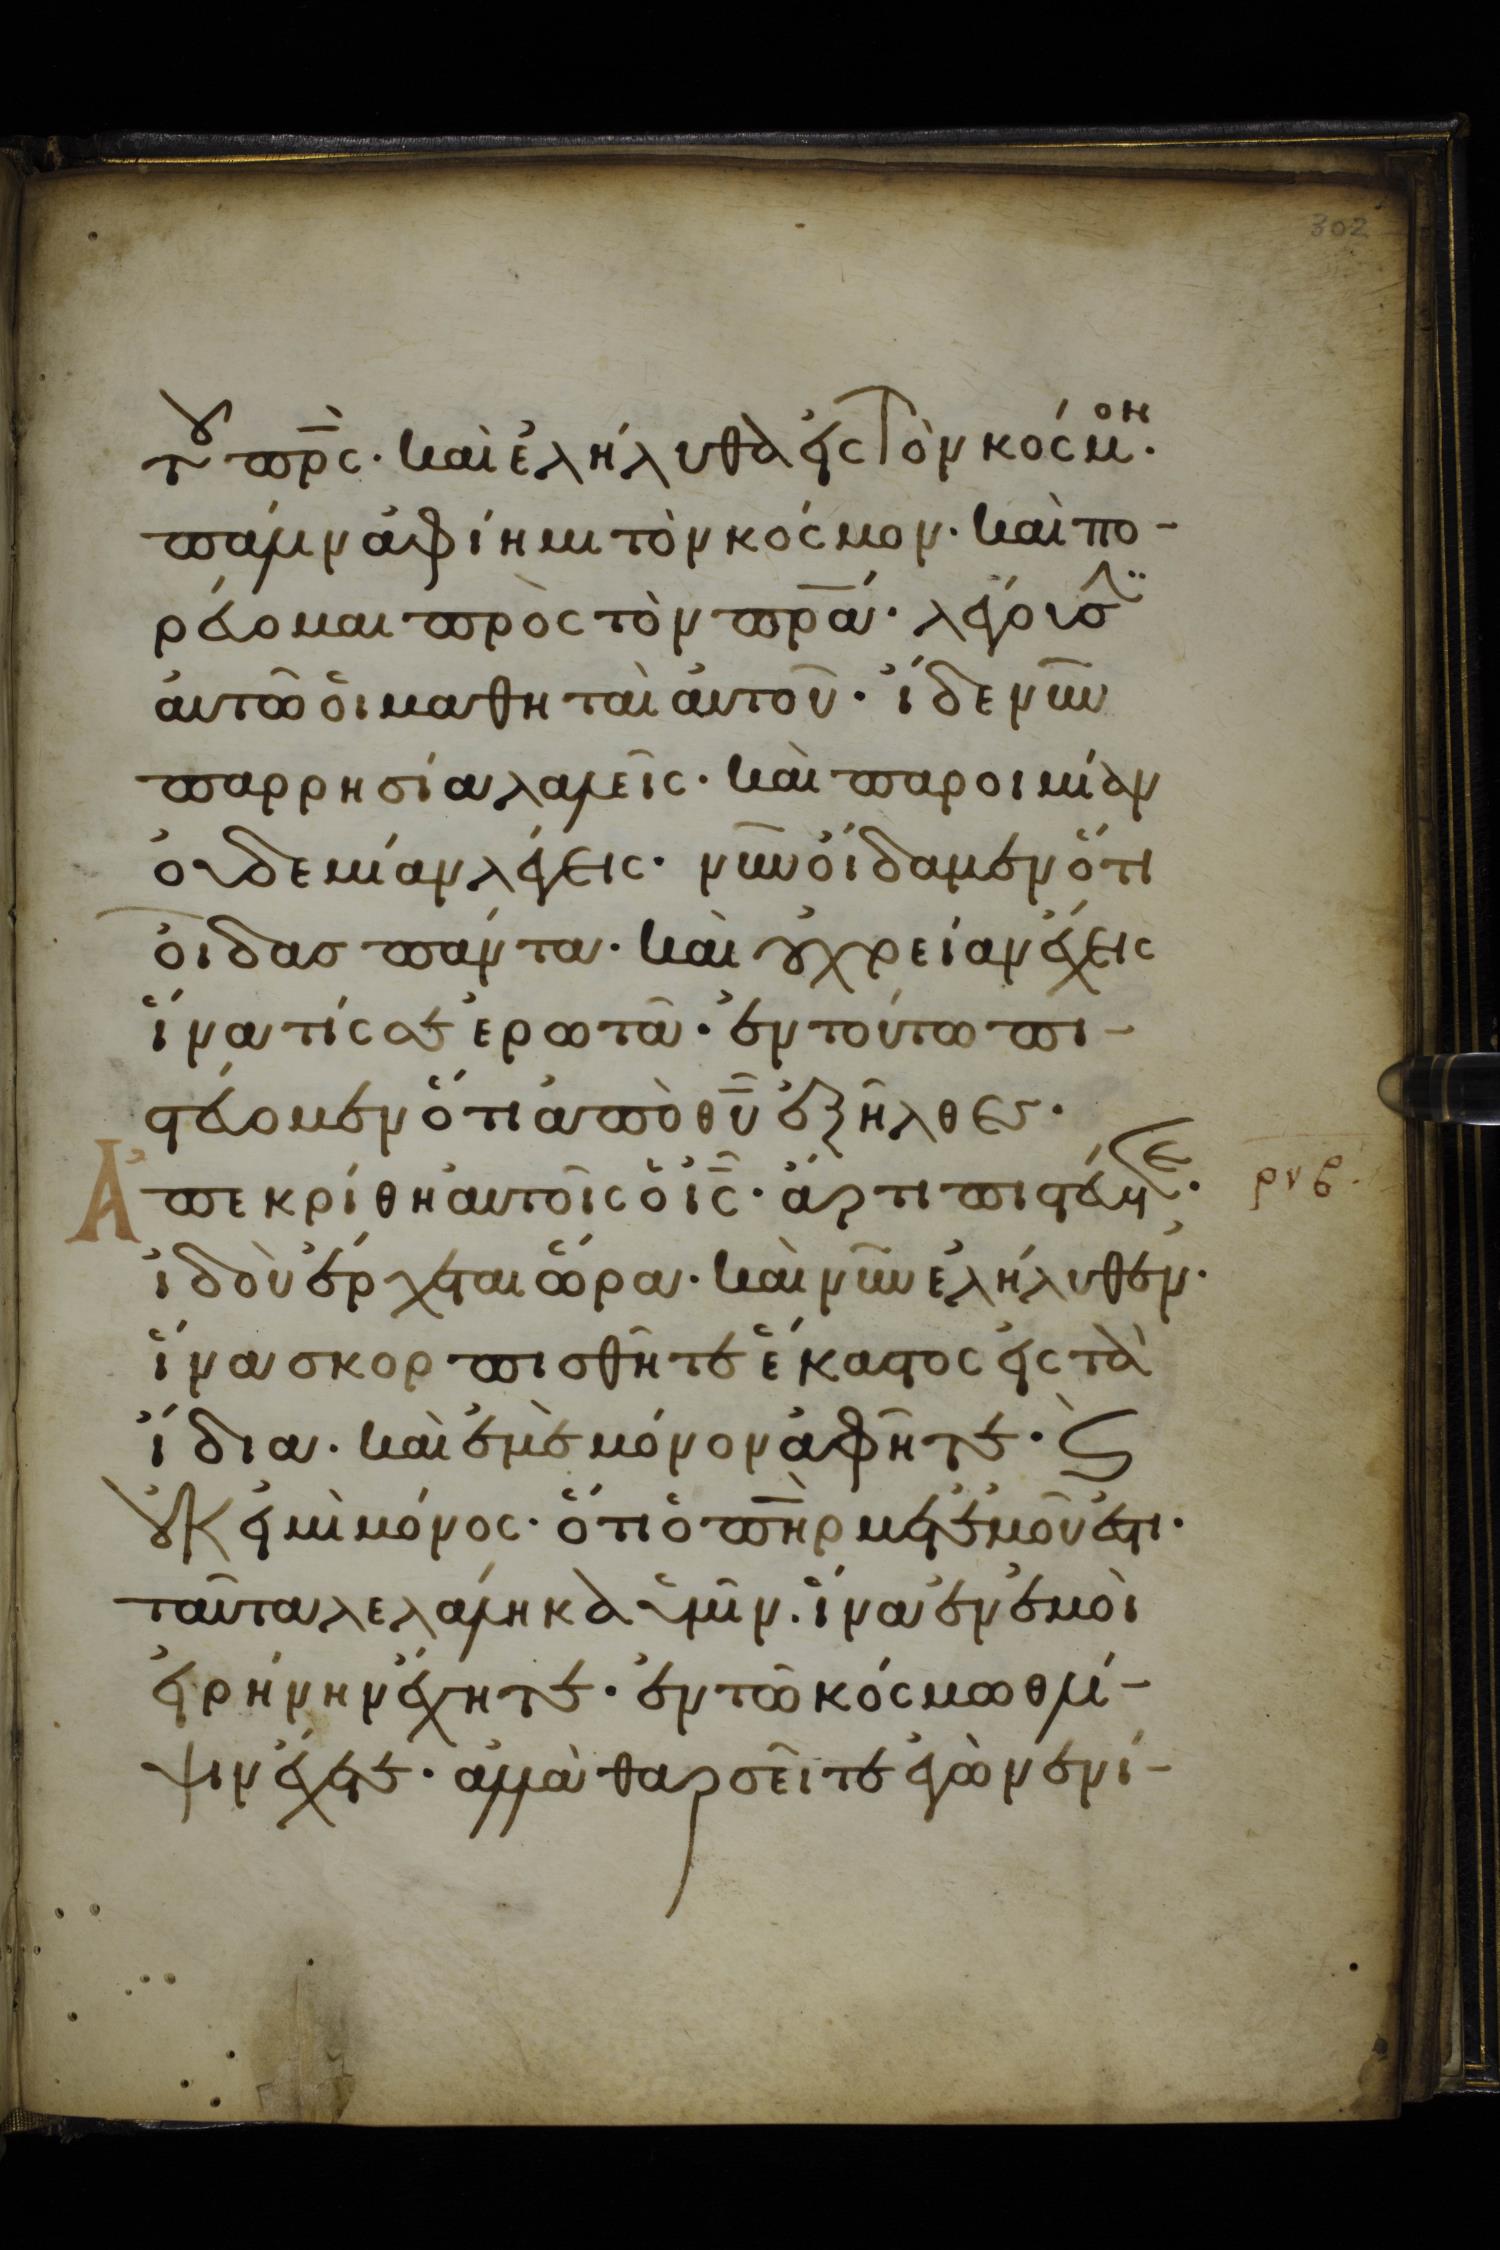 τοῦ πρ̅ς· καὶ ἐλήλυθα εἰς τὸν κόσμον·
πάλιν ἀφίημι τὸν κόσμον· καὶ πο-
ρεύομαι πρὸς τὸν πρ̅α· λέγουσιν
αὐτῶ οἱ μαθηταὶ αὐτοῦ· ἴδε νῦν
παρρησία λαλεῖς· καὶ παροιμίαν
οὐδεμίαν λέγεις· νῦν οἴδαμεν ὅτι
οἶδας πάντα· καὶ οὐ χρείαν ἔχεις
ἵνα τίς σε ἐρωτᾶ· ἐν τούτω πι-
στεύομεν ὅτι ἀπὸ θ̅υ ἐξῆλθες·
Ἀπεκρίθη αὐτοῖς ὁ ι̅ς· ἄρτι πιστεύετε· ρνβ·
ἰδοὺ ἔρχεται ὥρα· καὶ νῦν ἐλήλυθεν·
ἵνα σκορπισθῆτε ἕκαστος εἰς τὰ
ἴδια· καὶ ἐμὲ μόνον ἀφῆτε· ϗ
οὐκ εἰμὶ μόνος· ὅτι ὁ π̅ηρ μετ᾽ ἐμοῦ ἐστι·
ταῦτα λελάληκα ὑμῖν· ἵνα ἐν ἐμοὶ
εἰρήνην ἔχητε· ἐν τῶ κόσμω θλί-
ψιν ἔχετε· ἀλλὰ θαρσεῖτε ἐγὼ νενί-
302